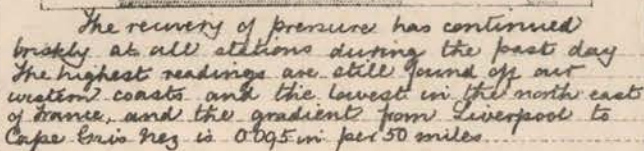 The recovery of pressure has continued
briskly at all stations during the past day
The highest readings are still found off our
western coasts and the lowest in the north east
of France, and the gradient from Liverpool to
Cape Gris Nez is 0.095 in per 50 miles